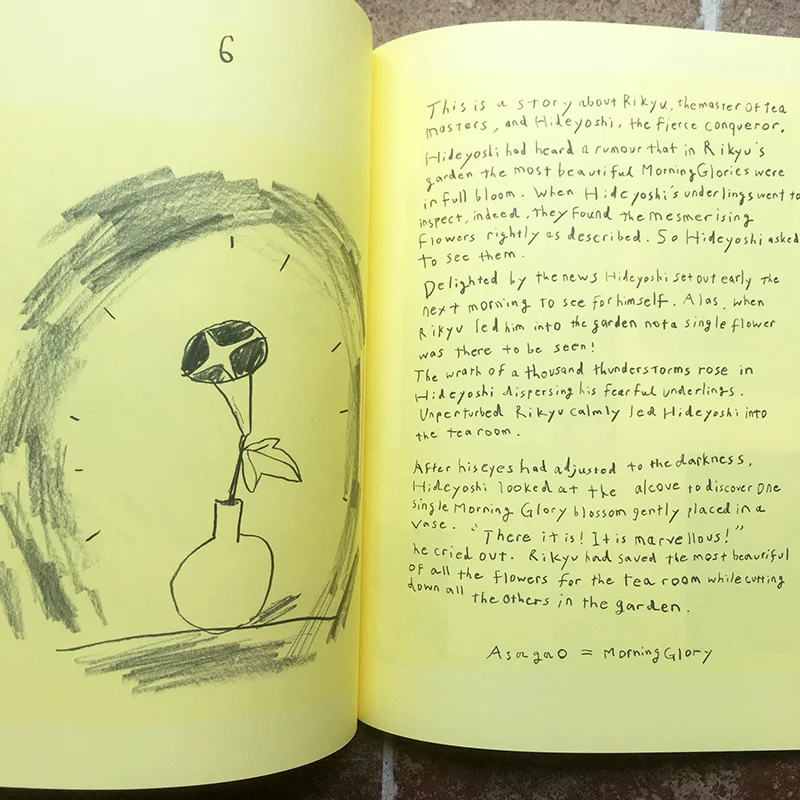 6
This is a story about Rikyu, the master of tea
masters, and Hideyoshi, the fierce conqueror.
Hideyoshi had heard a rumour that in Rikyu's
garden the most beautiful Morning Glories were
in full bloom. When Hideyoshi's underlings went to
inspect, indeed, they found the mesmerising
flowers rightly as described. So Hideyoshi asked
to see them.
Delighted by the news Hideyoshi set out early the
next morning to see for himself. Alas, when
Rikyu led him into the garden not a single flower
was there to be seen!
The wrath of a thousand thunderstorms rose in
Hideyoshi dispersing his fearful underlings.
Unperturbed Rikyu calmly led Hideyoshi into
the tea room.
After his eyes had adjusted to the darkness,
Hideyoshi looked at the alcove to discover one
single Morning Glory blossom gently placed in a
vase. "There it is! It is marvellous!"
he cried out. Rikyu had saved the most beautiful
of all the flowers for the tea room while cutting
down all the others in the garden.
Asagao = Morning Glory